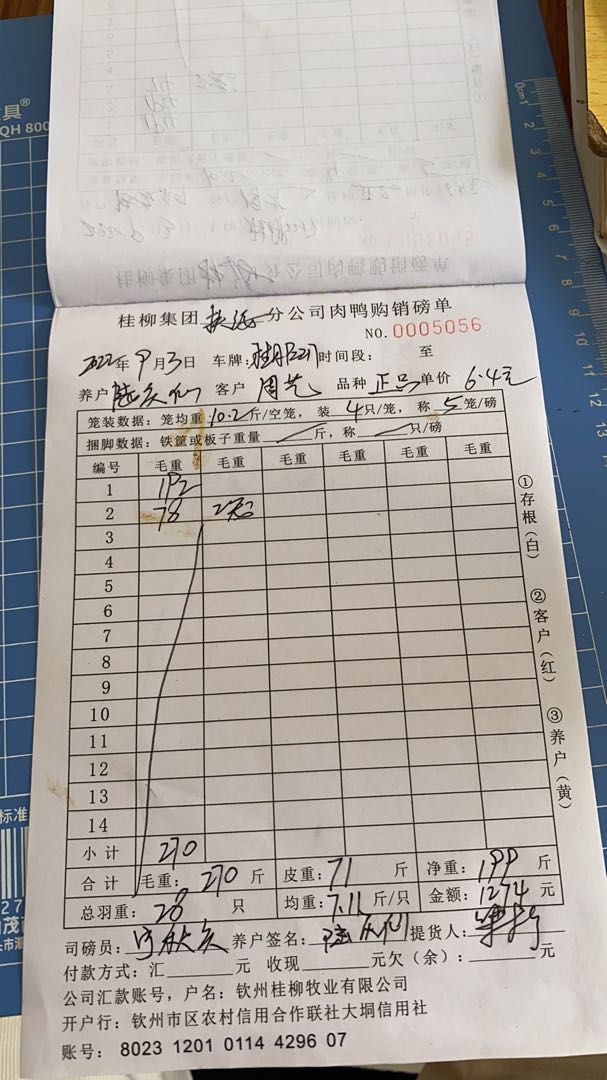 桂柳集团 分公司肉鸭购销磅单
NO.0005056
2022年9月3日 车牌: 时间段: 至
养户 客户 周艺 品种 正品 单价 6.4元
笼装数据: 笼均重 10.2 斤/空笼, 装 4 只/笼, 称 5 笼/磅
捆脚数据: 铁筐或板子重量 斤, 称 只/磅
编号 毛重 毛重 毛重 毛重 毛重 毛重
1 192
2 78 2笼
3
4
5
6
7
8
9
10
11
12
13
14
小计 270
合计 毛重: 270 斤 皮重: 71 斤 净重: 199 斤
总羽重: 28 只 均重: 7.11 斤/只 金额: 1274 元
司磅员: 养户签名: 提货人:
付款方式: 汇 元 收现 元欠(余): 元
公司汇款账号, 户名: 钦州桂柳牧业有限公司
开户行: 钦州市区农村信用合作联社大垌信用社
账号: 8023 1201 0114 4296 07
①存根(白)
②客户(红)
③养户(黄)